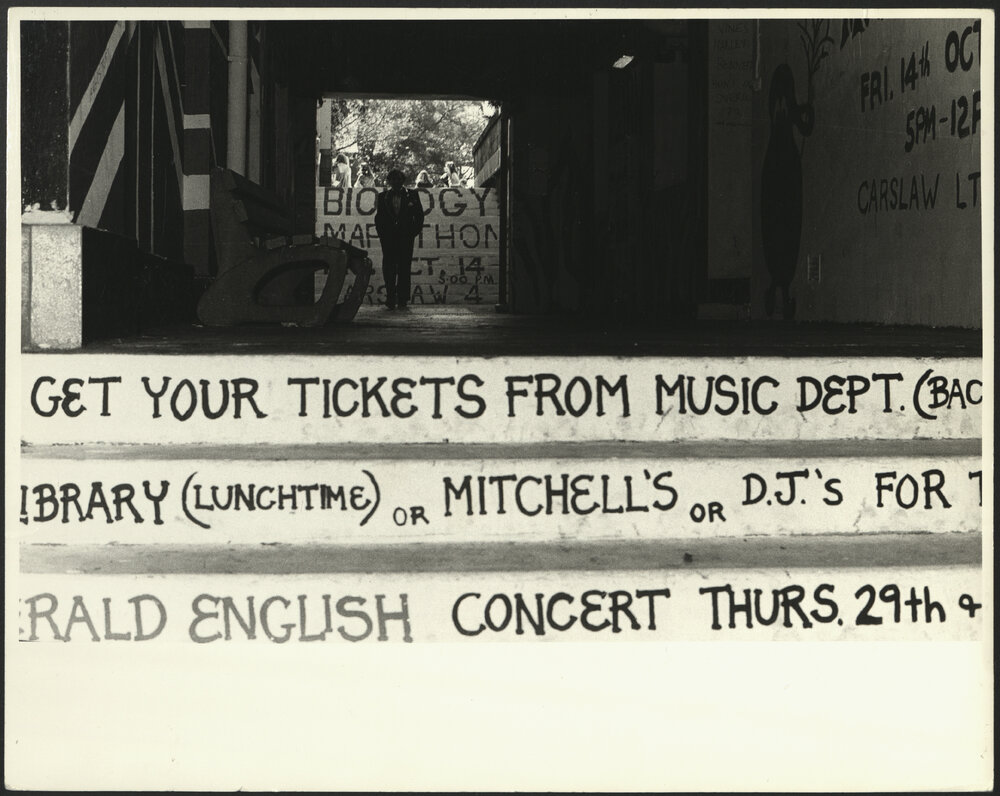 FRI. 14th OCT
5PM-12P
CARSLAW LT
BIOLOGY
MARATHON
CT. 14
5:00 PM
CARSLAW 4
GET YOUR TICKETS FROM MUSIC DEPT. (BAC
IBRARY (LUNCHTIME) OR MITCHELL'S OR D.J.'s FOR T
ERALD ENGLISH CONCERT THURS. 29th &